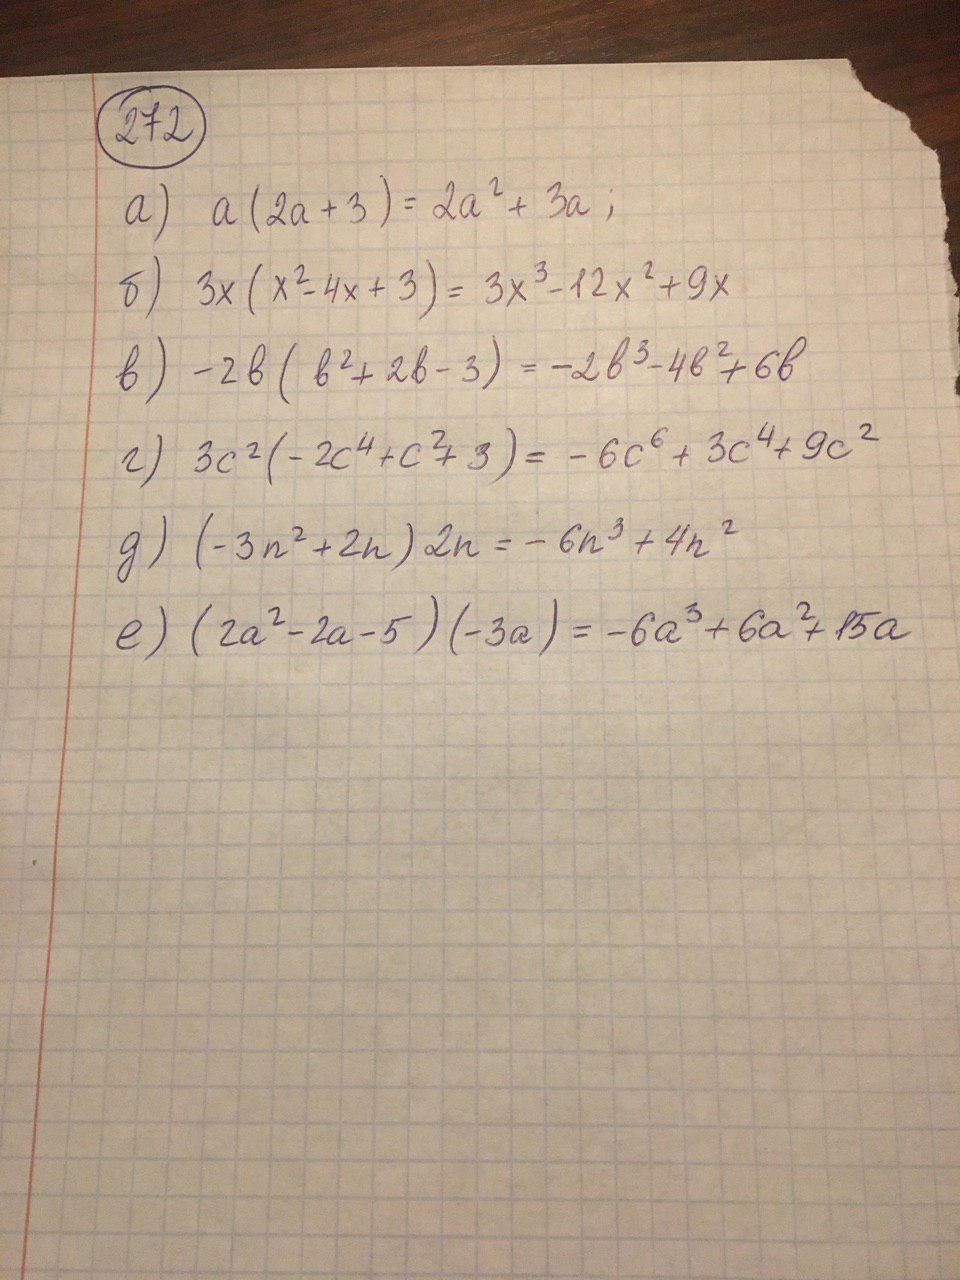 272
а) a(2a+3) = 2a²+ 3a;
б) 3x(x²-4x+3) = 3x³-12x²+9x
в) -2b(b²+2b-3) = -2b³-4b²+6b
г) 3c²(-2c⁴+c²+3) = -6c⁶+3c⁴+9c²
д) (-3n²+2n)2n = -6n³+4n²
е) (2a²-2a-5)(-3a) = -6a³+6a²+15a